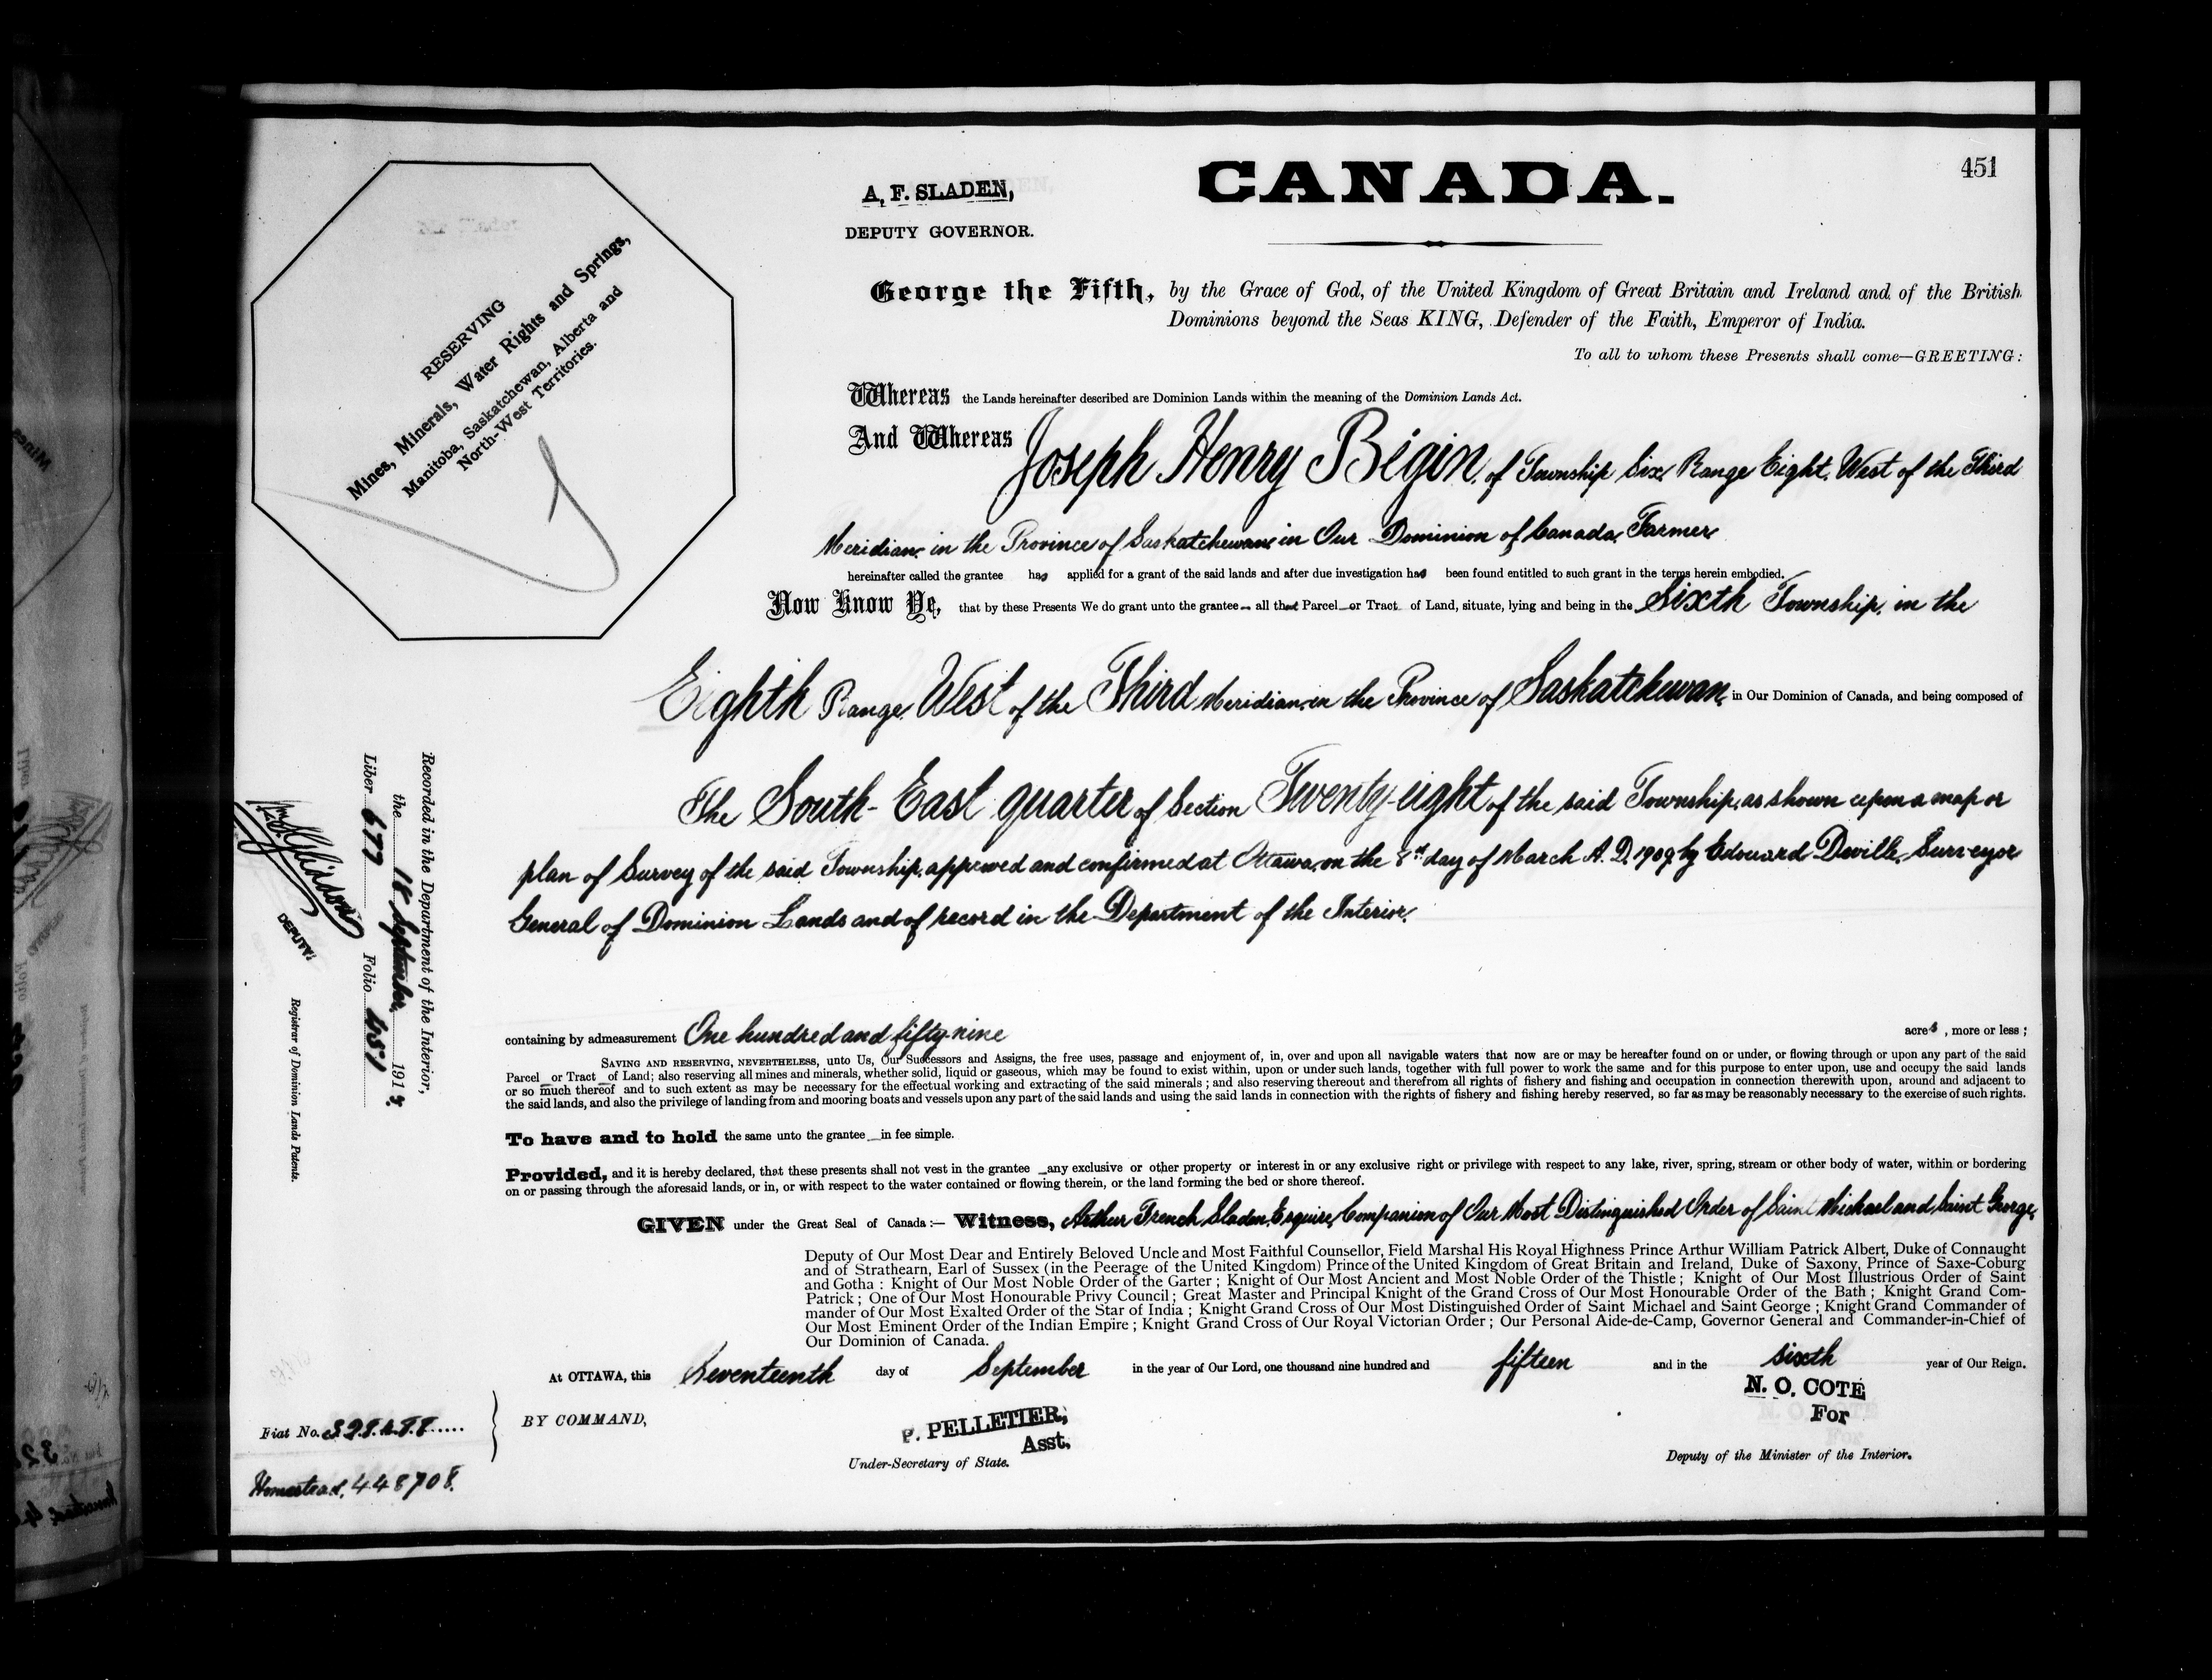 451
CANADA.
A. F. SLADEN,
DEPUTY GOVERNOR.
RESERVING
Mines, Minerals, Water Rights and Springs,
Manitoba, Saskatchewan, Alberta and
North-West Territories.
George the Fifth, by the Grace of God, of the United Kingdom of Great Britain and Ireland and of the British
Dominions beyond the Seas KING, Defender of the Faith, Emperor of India.
To all to whom these Presents shall come—GREETING:
Whereas the Lands hereinafter described are Dominion Lands within the meaning of the Dominion Lands Act.
And Whereas Joseph Henry Bigin, of Township Six, Range Eight, West of the Third
Meridian, in the Province of Saskatchewan, in Our Dominion of Canada, Farmer
hereinafter called the grantee has applied for a grant of the said lands and after due investigation has been found entitled to such grant in the terms herein embodied.
Now Know Ye, that by these Presents We do grant unto the grantee all that Parcel or Tract of Land, situate, lying and being in the Sixth Township, in the
Eighth Range, West of the Third Meridian, in the Province of Saskatchewan, in Our Dominion of Canada, and being composed of
The South-East quarter of Section Twenty-eight of the said Township, as shown upon a map or
plan of Survey of the said Township, approved and confirmed at Ottawa, on the day of March A. D. 1909, by Edouard Deville, Surveyor
General of Dominion Lands and of record in the Department of the Interior.
containing by admeasurement One hundred and fifty-nine acres, more or less;
SAVING AND RESERVING, NEVERTHELESS, unto Us, Our Successors and Assigns, the free uses, passage and enjoyment of, in, over and upon all navigable waters that now are or may be hereafter found on or under, or flowing through or upon any part of the said
Parcel or Tract of Land; also reserving all mines and minerals, whether solid, liquid or gaseous, which may be found to exist within, upon or under such lands, together with full power to work the same and for this purpose to enter upon, use and occupy the said lands
or so much thereof and to such extent as may be necessary for the effectual working and extracting of the said minerals; and also reserving thereout and therefrom all rights of fishery and fishing and occupation in connection therewith upon, around and adjacent to
the said lands, and also the privilege of landing from and mooring boats and vessels upon any part of the said lands and using the said lands in connection with the rights of fishery and fishing hereby reserved, so far as may be reasonably necessary to the exercise of such rights.
To have and to hold the same unto the grantee in fee simple.
Provided, and it is hereby declared, that these presents shall not vest in the grantee any exclusive or other property or interest in or any exclusive right or privilege with respect to any lake, river, spring, stream or other body of water, within or bordering
on or passing through the aforesaid lands, or in, or with respect to the water contained or flowing therein, or the land forming the bed or shore thereof.
GIVEN under the Great Seal of Canada:— Witness, Arthur French Sladen, Esquire, Companion of Our Most Distinguished Order of Saint Michael and Saint George,
Deputy of Our Most Dear and Entirely Beloved Uncle and Most Faithful Counsellor, Field Marshal His Royal Highness Prince Arthur William Patrick Albert, Duke of Connaught
and of Strathearn, Earl of Sussex (in the Peerage of the United Kingdom) Prince of the United Kingdom of Great Britain and Ireland, Duke of Saxony, Prince of Saxe-Coburg
and Gotha: Knight of Our Most Noble Order of the Garter; Knight of Our Most Ancient and Most Noble Order of the Thistle; Knight of Our Most Illustrious Order of Saint
Patrick; One of Our Most Honourable Privy Council; Great Master and Principal Knight of the Grand Cross of Our Most Honourable Order of the Bath; Knight Grand Com-
mander of Our Most Exalted Order of the Star of India; Knight Grand Cross of Our Most Distinguished Order of Saint Michael and Saint George; Knight Grand Commander of
Our Most Eminent Order of the Indian Empire; Knight Grand Cross of Our Royal Victorian Order; Our Personal Aide-de-Camp, Governor General and Commander-in-Chief of
Our Dominion of Canada.
At OTTAWA, this Seventeenth day of September in the year of Our Lord, one thousand nine hundred and fifteen and in the sixth year of Our Reign.
BY COMMAND,
P. PELLETIER,
Asst.
Under-Secretary of State.
N. O. COTÉ
For
Deputy of the Minister of the Interior.
Recorded in the Department of the Interior,
the 18 September, 1915.
Liber 677 Folio 451
DEPUTY
Registrar of Dominion Lands Patents.
Fiat No.
Homestead, 448708.